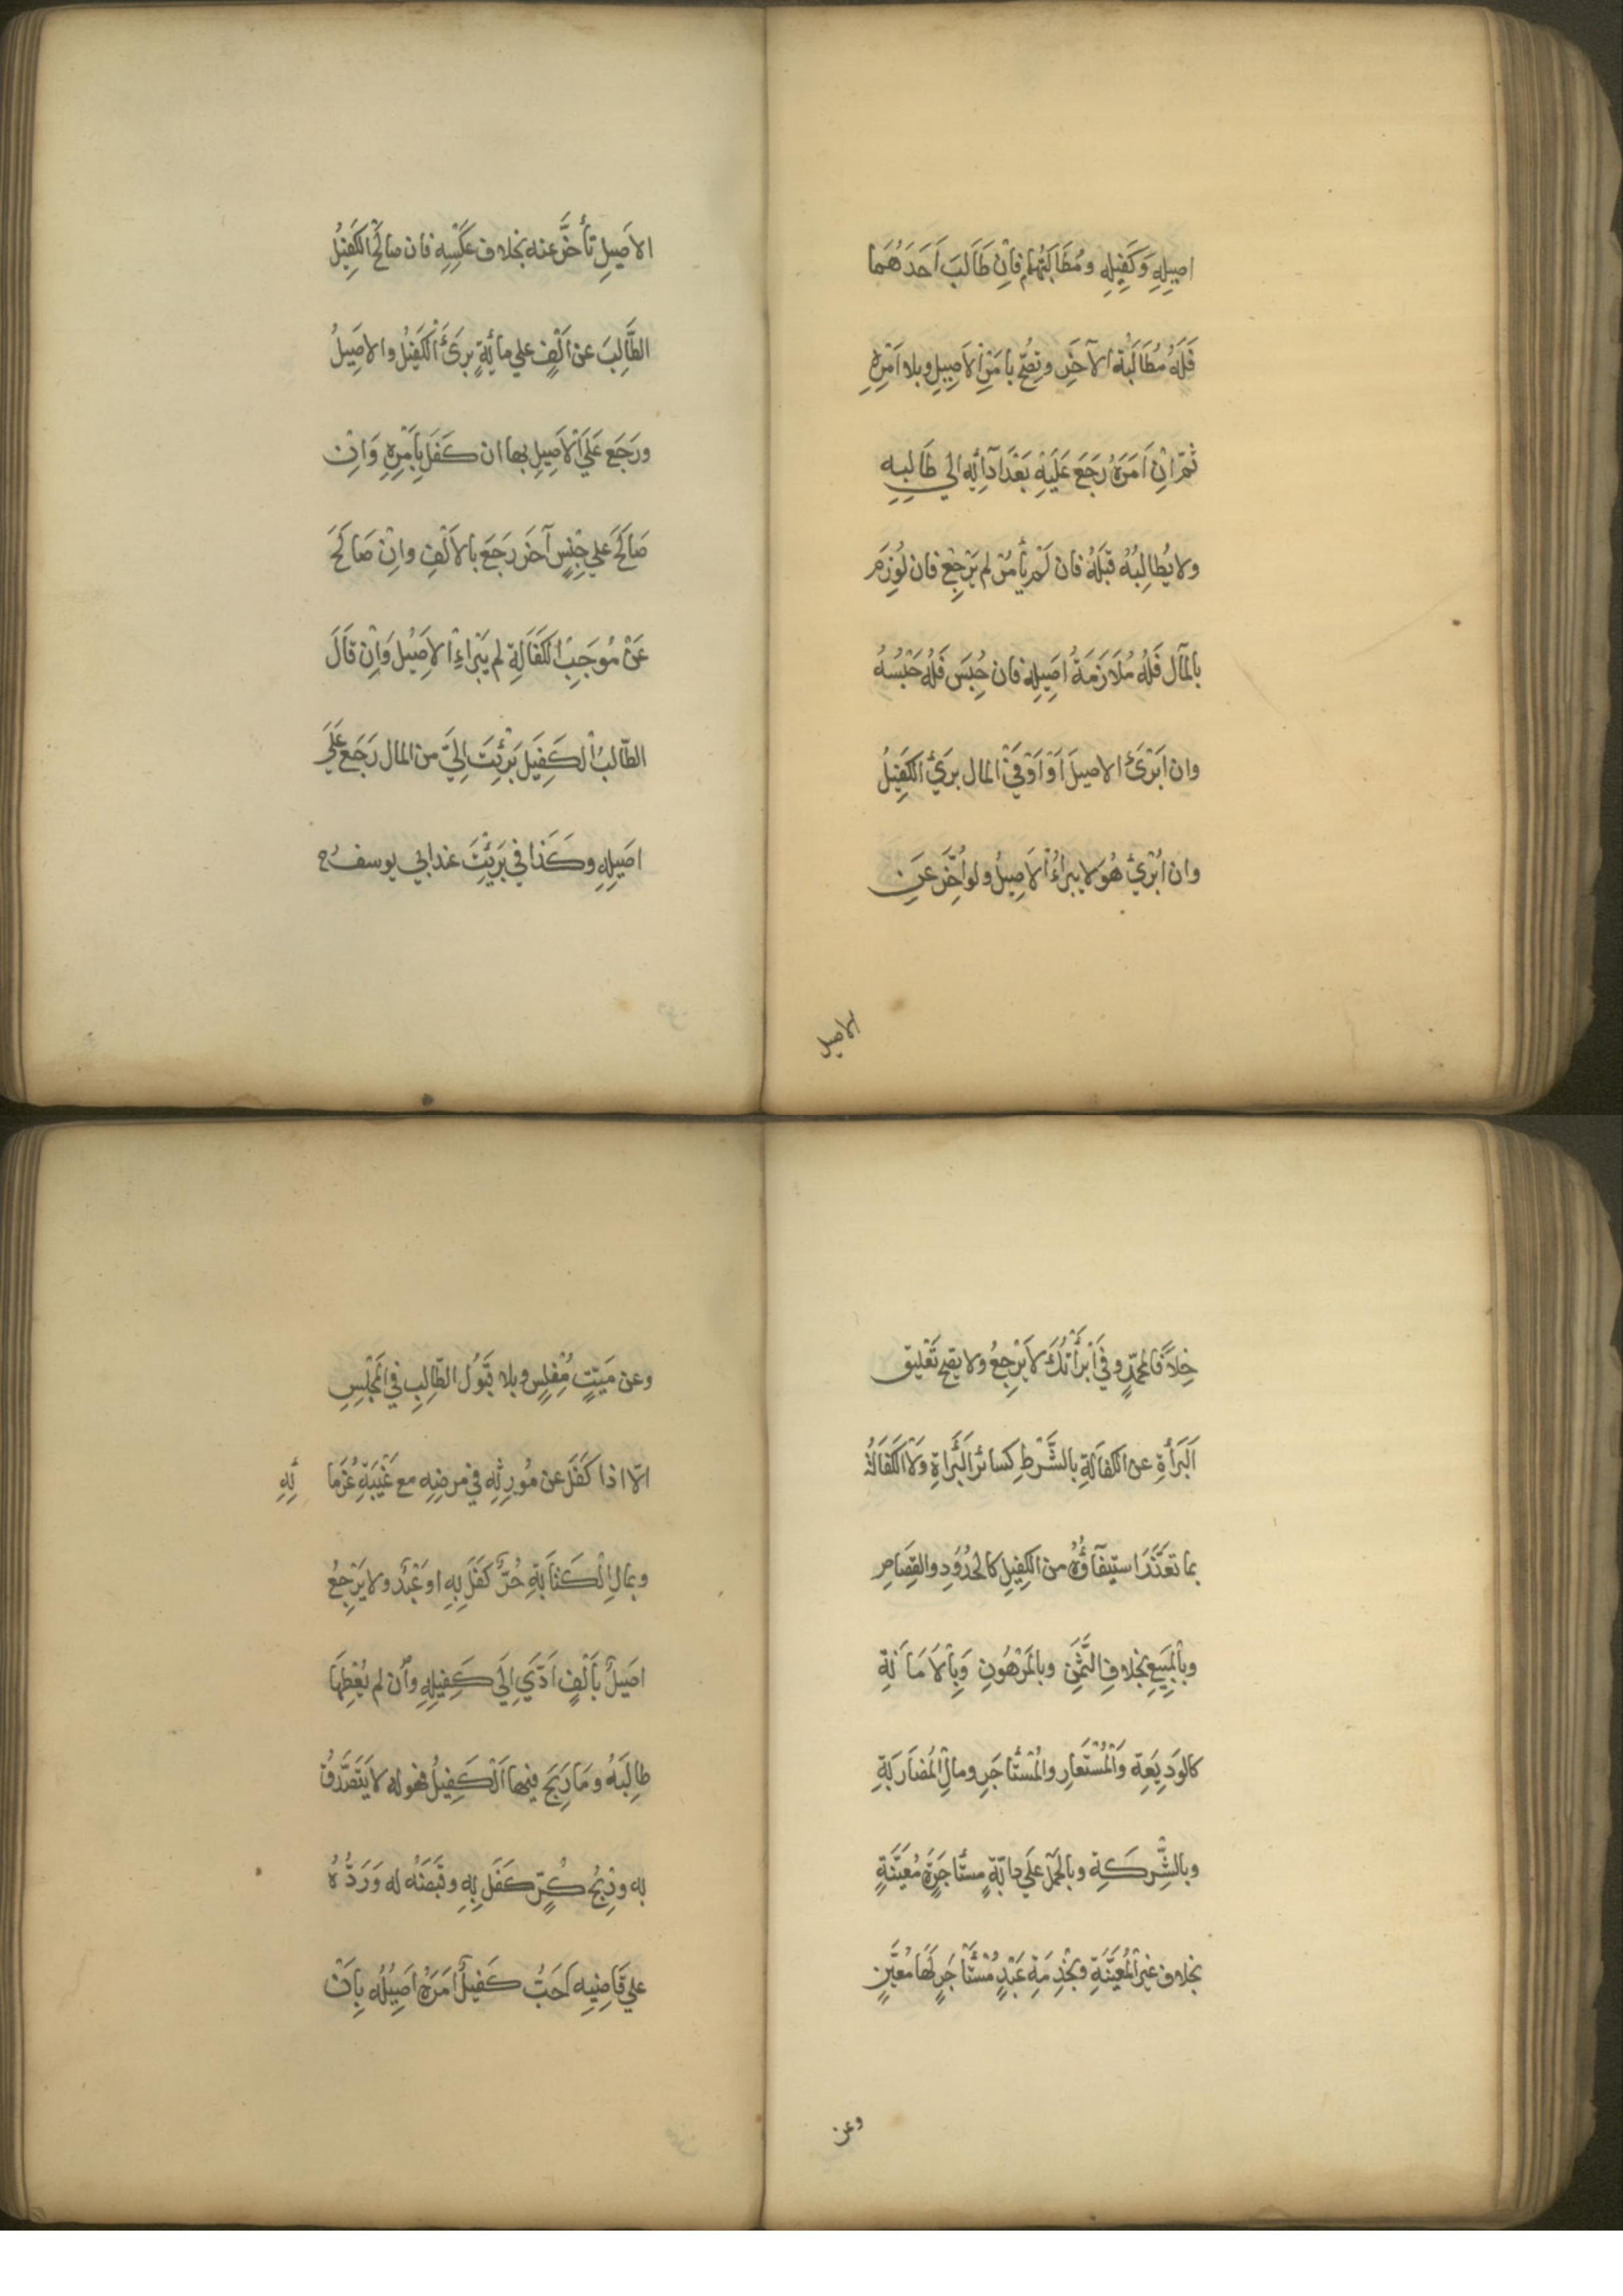 اصِيلِهِ وَكَفِيلِهِ ومُطَالَبَتُهُمَا فَاِنْ طَالَبَ اَحَدَهُمَا
فَلَهُ مُطَالَبَةُ الآخَرِ وتصِحُّ بِاَمْرِ الاَصِيلِ وبلا اَمْرِهِ
ثُمَّ اِنْ اَمَرَهُ رَجَعَ عَلَيْهِ بَعْدَ اَدَآئِهِ الي طَالِبِهِ
ولا يُطالِبُهُ قَبْلَهُ فان لَمْ يَأمُرْ لم يَرْجِعْ فان لُوزِمَ
بِالمَآل فَلَهُ مُلاَزَمَةُ اَصِيلِهِ فان حُبِسَ فَلَهُ حَبْسُهُ
وان اَبْرَئَ الاصيلَ اَوْ اَوْفَيْ المال بَرِئَ الكَفِيْلُ
وان اُبْرِئَ هُوَ لا يبراءُ الاَصِيلُ ولو اُخِّرَ عَنِ
الاصيل
الاَصِيلِ تَأَخَّرَ عنه بخلاف عَكْسِهِ فان صَالَحَ الكَفِيْلُ
الطَّالِبَ عن اَلْفٍ علي مائَةٍ بَرِئَ الْكَفِيْلُ والاَصِيْلُ
ورَجَعَ عَلَي الْاَصِيلِ بها ان كَفَلَ بِاَمْرِهِ وَاِنْ
صَالَحَ علي جِنْسٍ آخَرَ رَجَعَ بالاَلْفِ واِنْ صَالَحَ
عَنْ مُوجَبِ الْكَفَالَةِ لم يَبْرَاءِ الاَصِيْلُ وَاِنْ قَالَ
الطّالِبُ الْكَفِيلَ بَرِئْتَ اِلَيَّ من المال رَجَعَ عَلَي
اصَيلِهِ وكَذا في بَرِئْتَ عند ابي يوسفُ ح
خِلاَفًا لمحمّدٍ وفي اَبْرَأْتُكَ لاَ يَرْجِعُ ولا يصِحّ تَعْليق
اَلبَرَأةِ عن الكفالَةِ بالشَّرْطِ كسائر البَرَاةِ ولا الكَفَالَةُ
بما تعَذَّرَ استيفَآؤُهُ من الكفِيلِ كالحدُوْدِ والقِصَاصِ
وبِالْمَبِيعِ بخلافِ الثَّمَنِ وبِالمَرْهُونِ وَبِالْاَمَانَةِ
كالوَدِيْعَةِ وَالْمُسْتَعَارِ والمُسْتَأجَرِ ومالِ الْمُضَارَبَةِ
وبالشِّركَةِ وبالحَمْلِ عَلَي دابّةٍ مستَأجَرَةٍ مُعَيَّنَةٍ
بخلاف غير الْمُعَيَّنَةِ وبِخِدْمَةِ عَبْدٍ مُسْتَأْجَرٍ لَهَا مُعَيَّنٍ
وعن
وعن مَيّتٍ مُفْلِسٍ وبلا قَبُوْلِ الطّالِبِ في المَجْلِسِ
الّا اذا كَفَلَ عن مُورِثِهِ في مرضِهِ مع غَيْبَةِ غُرَمَا ئِهِ
وبمالِ الْكتَابَةِ حُرٌّ كَفَلَ بِهِ او عَبْدٌ ولا يَرْجِعُ
اَصِيلٌ بأَلْفٍ اَدَّيَ اِلَي كَفِيلِهِ وَاِن لم يُعْطِهَا
طالِبَهُ ومَا رَبِحَ فيها اَلْكَفِيلُ فهو له لا يَتَصَدَّقُ
به ورِبْحُ كُرٍّ كَفَلَ بِهِ وقَبَضَهُ له وَرَدُّهُ
علي قَاضِيهِ اَحَبُّ كَفِيلٌ اَمَرَهُ اَصِيْلُه بِاَنْ